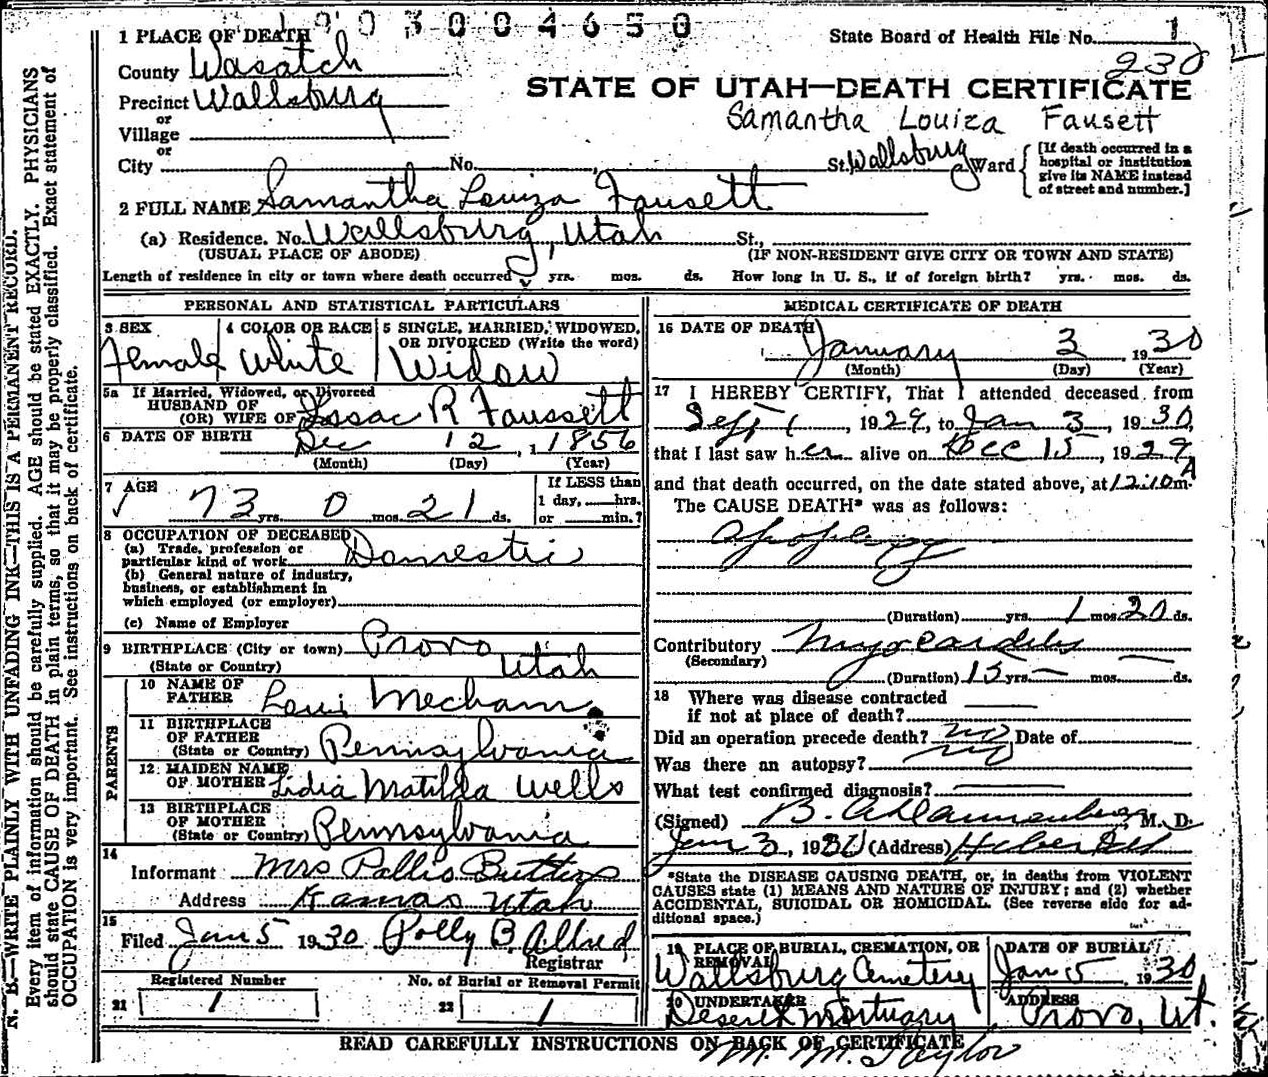 1903004650
1 PLACE OF DEATH
State Board of Health File No. 1
230
County Wasatch
STATE OF UTAH—DEATH CERTIFICATE
Precinct Wallsburg
or
Village
Samantha Louiza Fausett
or
City No. St. Wallsburg Ward
[If death occurred in a
hospital or institution
give its NAME instead
of street and number.]
2 FULL NAME Samantha Louiza Fausett
(a) Residence. No. Wallsburg, Utah St.,
(USUAL PLACE OF ABODE) (IF NON-RESIDENT GIVE CITY OR TOWN AND STATE)
Length of residence in city or town where death occurred yrs. mos. ds. How long in U. S., if of foreign birth? yrs. mos. ds.
PERSONAL AND STATISTICAL PARTICULARS
3 SEX
Female
4 COLOR OR RACE
White
5 SINGLE, MARRIED, WIDOWED,
OR DIVORCED (Write the word)
Widow
5a If Married, Widowed, or Divorced
HUSBAND OF
(OR) WIFE OF Issac R Faussett
6 DATE OF BIRTH Dec 12, 1 1856
(Month) (Day) (Year)
7 AGE
73 yrs. 0 mos. 21 ds.
If LESS than
1 day, hrs.
or min.?
8 OCCUPATION OF DECEASED
(a) Trade, profession or
particular kind of work Domestic
(b) General nature of industry,
business, or establishment in
which employed (or employer)
(c) Name of Employer
9 BIRTHPLACE (City or town) Provo
(State or Country) Utah
PARENTS
10 NAME OF
FATHER Lewis Mecham
11 BIRTHPLACE
OF FATHER
(State or Country) Pennsylvania
12 MAIDEN NAME
OF MOTHER Lidia Matilda Wells
13 BIRTHPLACE
OF MOTHER
(State or Country) Pennsylvania
14
Informant Mrs Butters
Address Kamas Utah
15
Filed Jan 5 1930 Polly B. Allred
Registrar
Registered Number No. of Burial or Removal Permit
21 1 22 1
MEDICAL CERTIFICATE OF DEATH
16 DATE OF DEATH
January 3 1930
(Month) (Day) (Year)
17 I HEREBY CERTIFY, That I attended deceased from
Sept 1, 1929, to Jan 3, 1930,
that I last saw her alive on Dec 15, 1929
and that death occurred, on the date stated above, at 12:10 A m.
The CAUSE DEATH* was as follows:
Apoplexy
(Duration) yrs. 1 mos. 20 ds.
Contributory Myocarditis
(Secondary)
(Duration) 15 yrs. — mos. — ds.
18 Where was disease contracted
if not at place of death?
Did an operation precede death? no Date of
Was there an autopsy? no
What test confirmed diagnosis?
(Signed) M. D.
Jan 3, 1930 (Address) Heber
*State the DISEASE CAUSING DEATH, or, in deaths from VIOLENT
CAUSES state (1) MEANS AND NATURE OF INJURY; and (2) whether
ACCIDENTAL, SUICIDAL OR HOMICIDAL. (See reverse side for ad-
ditional space.)
19 PLACE OF BURIAL, CREMATION, OR
REMOVAL
Wallsburg Cemetery
DATE OF BURIAL
Jan 5 1930
20 UNDERTAKER
Deseret Mortuary
ADDRESS
Provo, Ut.
READ CAREFULLY INSTRUCTIONS ON BACK OF CERTIFICATE
M. Taylor
N. B.—WRITE PLAINLY WITH UNFADING INK—THIS IS A PERMANENT RECORD.
Every item of information should be carefully supplied. AGE should be stated EXACTLY. PHYSICIANS
should state CAUSE OF DEATH in plain terms, so that it may be properly classified. Exact statement of
OCCUPATION is very important. See instructions on back of certificate.